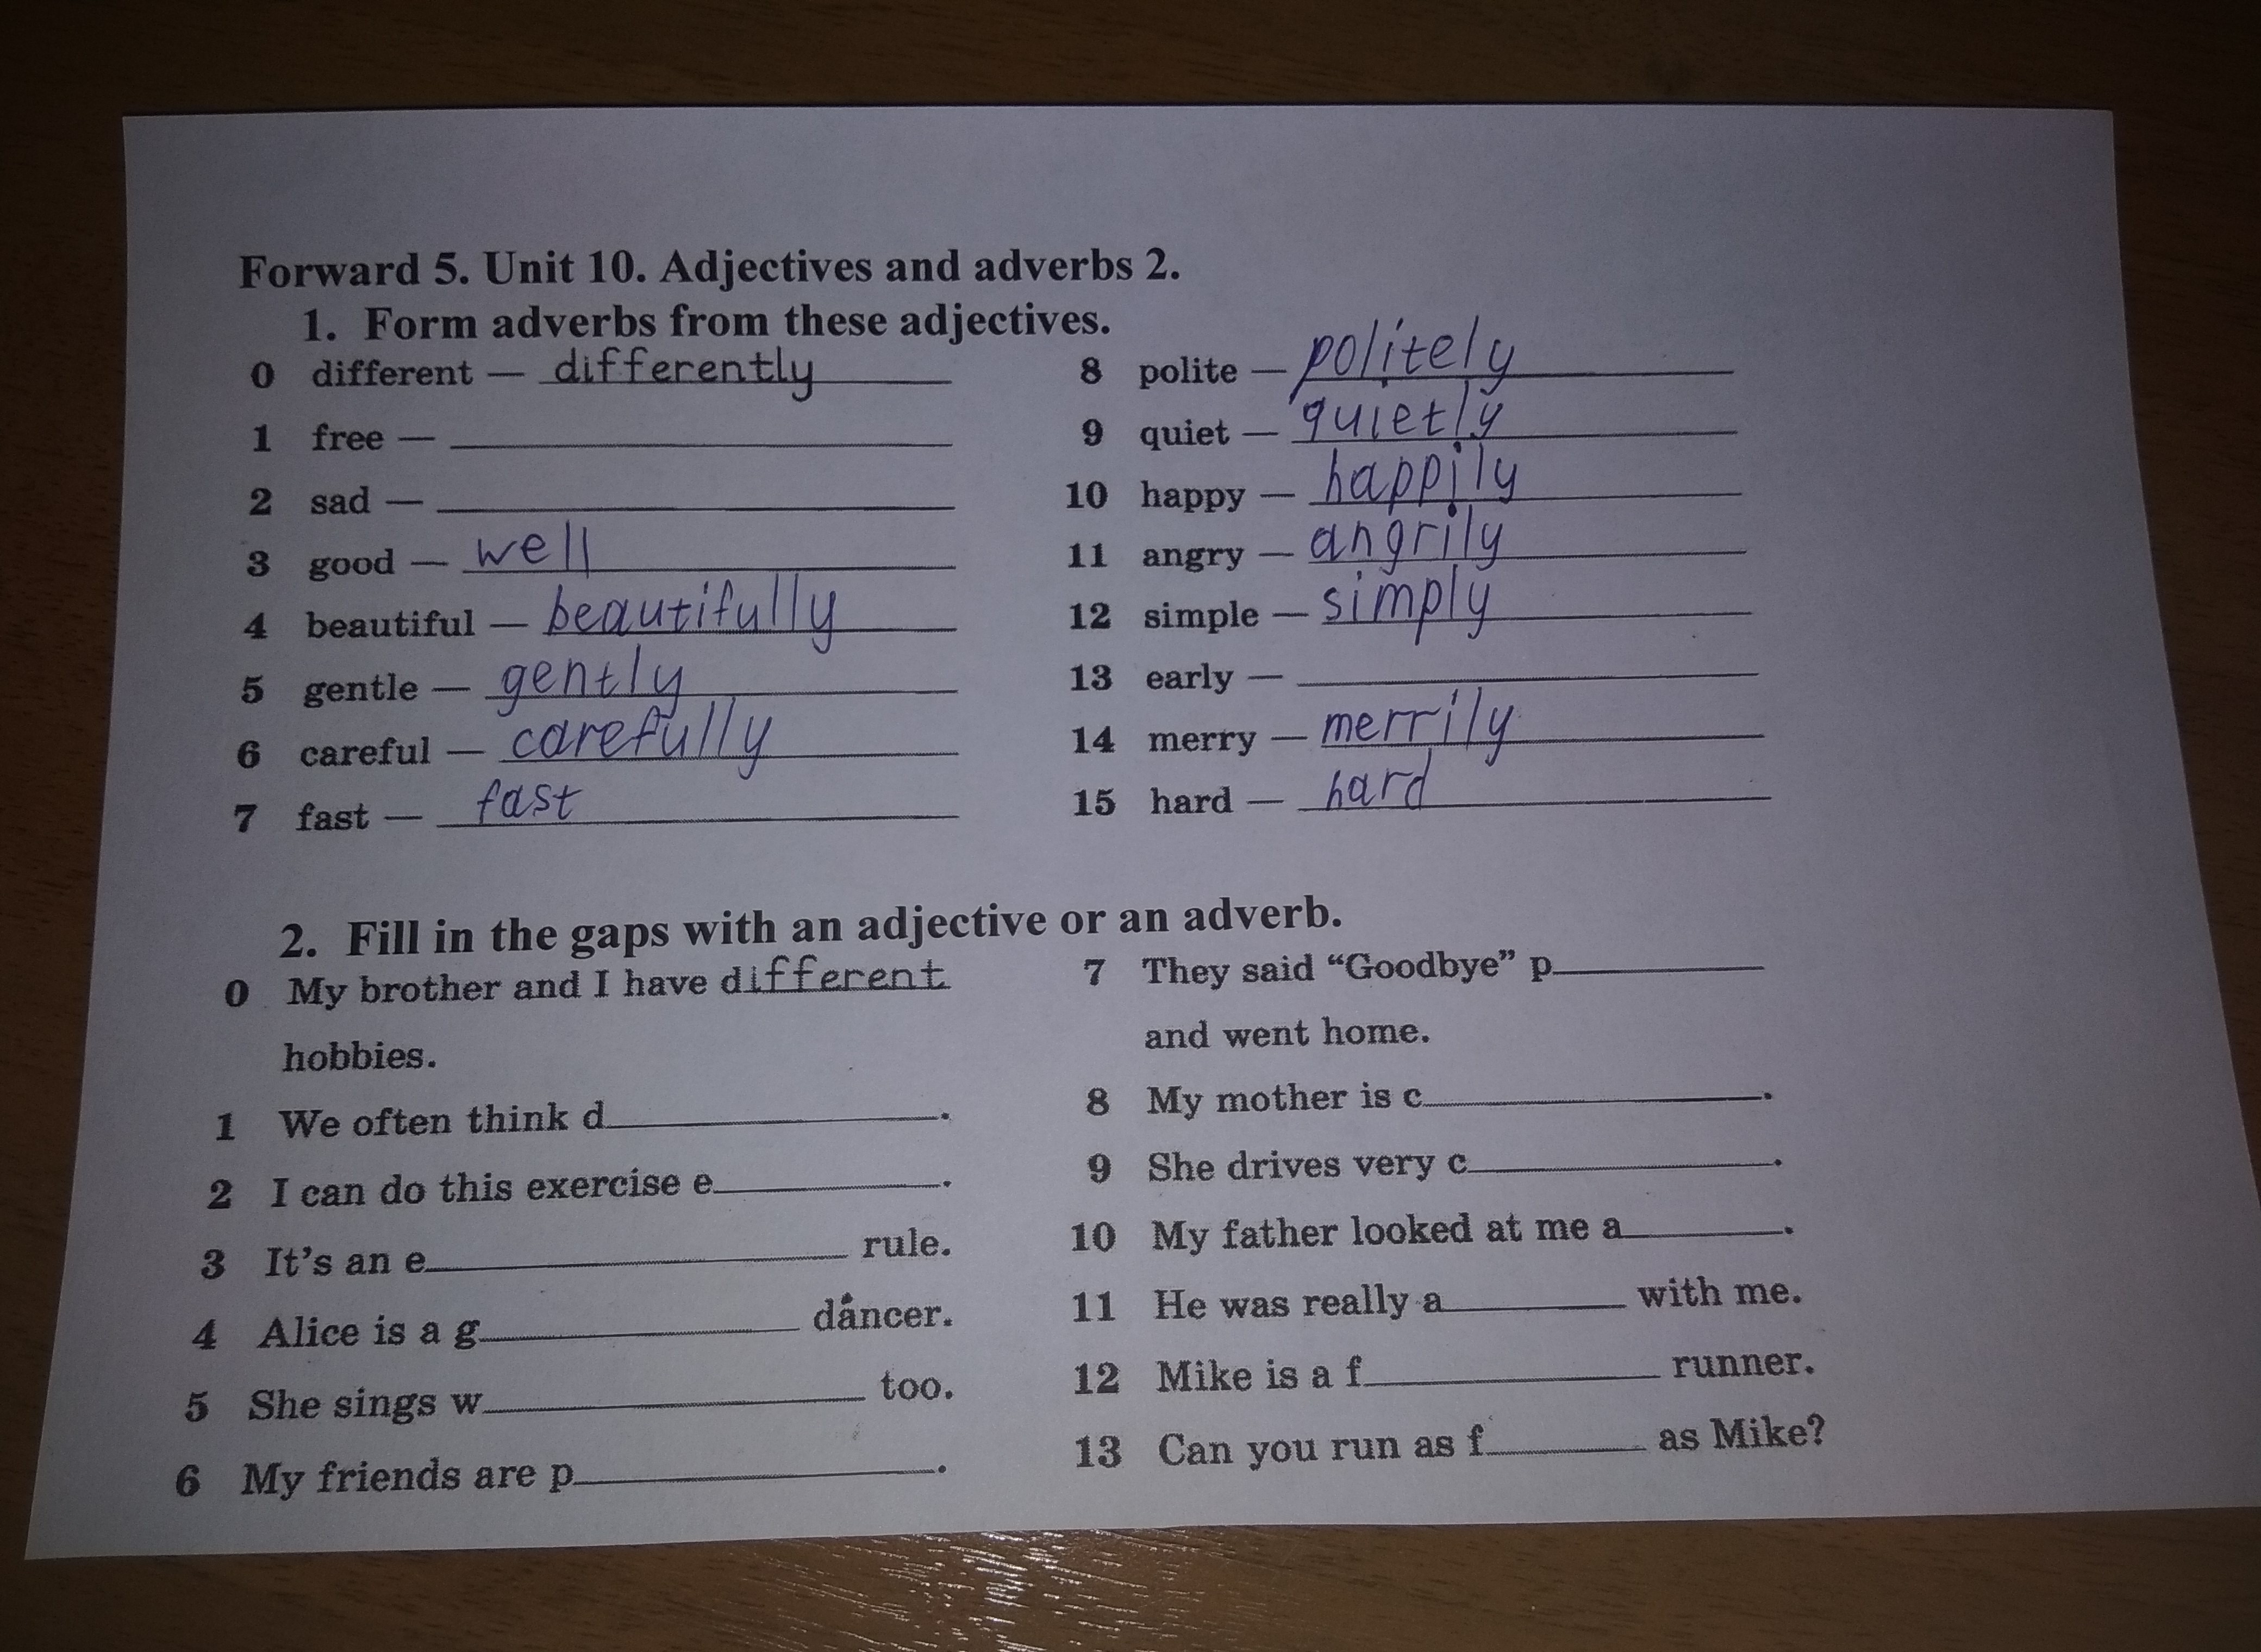 Forward 5. Unit 10. Adjectives and adverbs 2.
1. Form adverbs from these adjectives.
0 different — differently
1 free — 
2 sad — 
3 good — well
4 beautiful — beautifully
5 gentle — gently
6 careful — carefully
7 fast — fast
8 polite — politely
9 quiet — quietly
10 happy — happily
11 angry — angrily
12 simple — simply
13 early — 
14 merry — merrily
15 hard — hard
2. Fill in the gaps with an adjective or an adverb.
0 My brother and I have different
hobbies.
1 We often think d________.
2 I can do this exercise e________.
3 It's an e________ rule.
4 Alice is a g________ dancer.
5 She sings w________ too.
6 My friends are p________.
7 They said “Goodbye” p________
and went home.
8 My mother is c________.
9 She drives very c________.
10 My father looked at me a________.
11 He was really a________ with me.
12 Mike is a f________ runner.
13 Can you run as f________ as Mike?